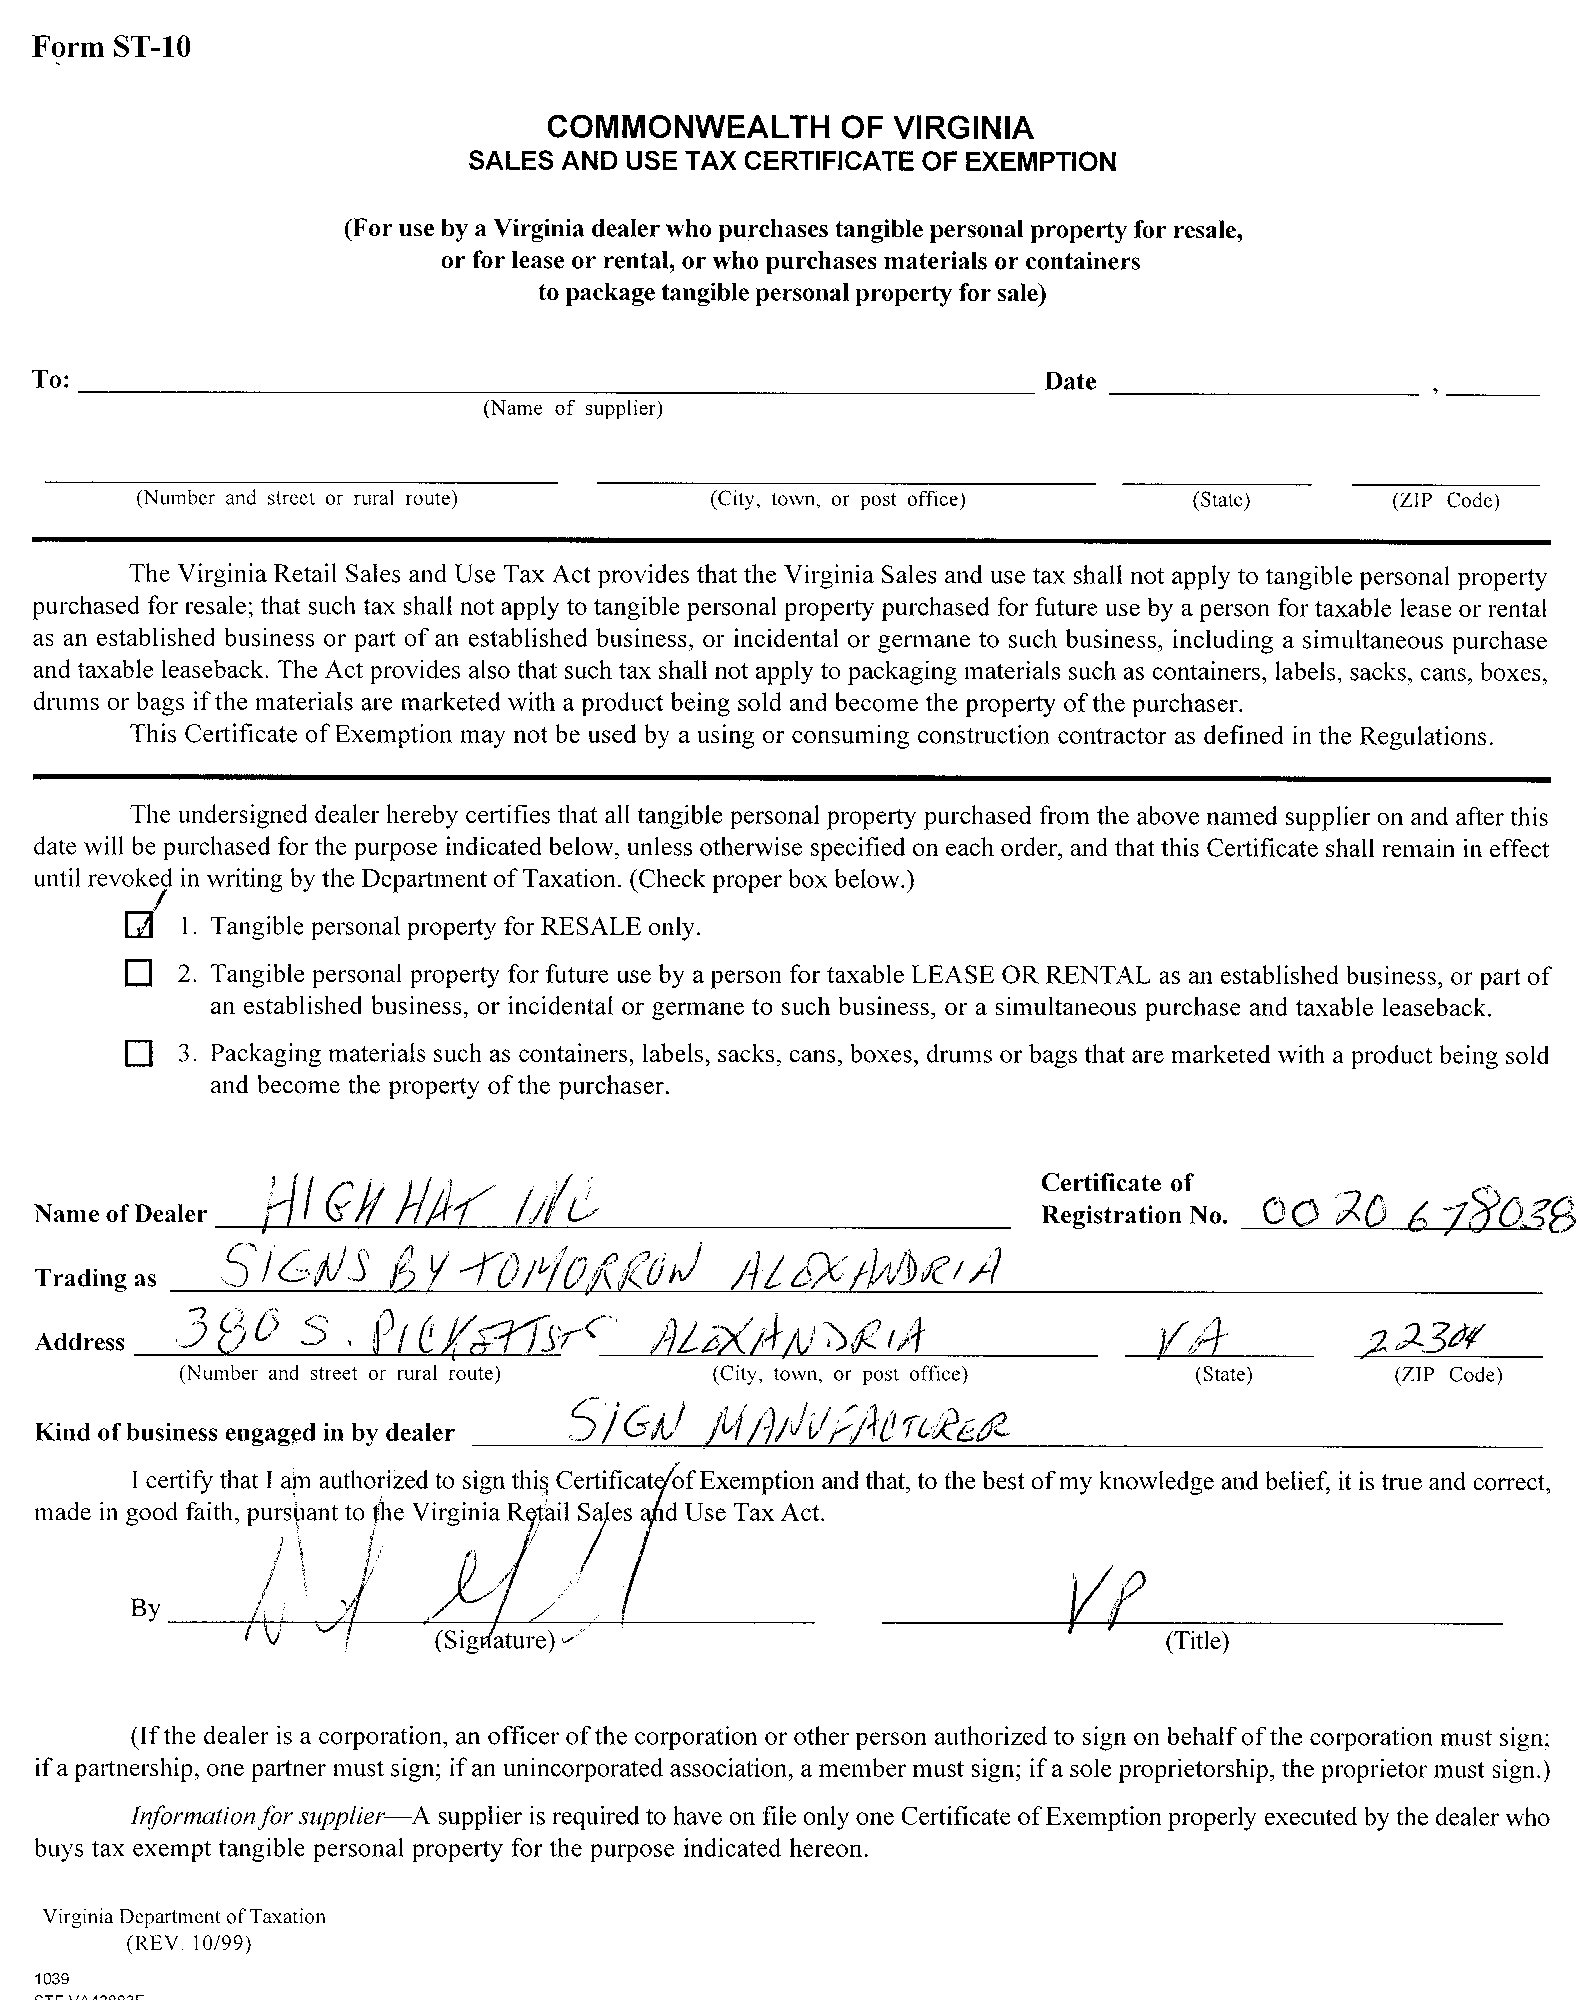 Form ST-10
COMMONWEALTH OF VIRGINIA
SALES AND USE TAX CERTIFICATE OF EXEMPTION
(For use by a Virginia dealer who purchases tangible personal property for resale,
or for lease or rental, or who purchases materials or containers
to package tangible personal property for sale)
To: Date ,
(Name of supplier)
(Number and street or rural route) (City, town, or post office) (State) (ZIP Code)
The Virginia Retail Sales and Use Tax Act provides that the Virginia Sales and use tax shall not apply to tangible personal property
purchased for resale; that such tax shall not apply to tangible personal property purchased for future use by a person for taxable lease or rental
as an established business or part of an established business, or incidental or germane to such business, including a simultaneous purchase
and taxable leaseback. The Act provides also that such tax shall not apply to packaging materials such as containers, labels, sacks, cans, boxes,
drums or bags if the materials are marketed with a product being sold and become the property of the purchaser.
This Certificate of Exemption may not be used by a using or consuming construction contractor as defined in the Regulations.
The undersigned dealer hereby certifies that all tangible personal property purchased from the above named supplier on and after this
date will be purchased for the purpose indicated below, unless otherwise specified on each order, and that this Certificate shall remain in effect
until revoked in writing by the Department of Taxation. (Check proper box below.)
1. Tangible personal property for RESALE only.
2. Tangible personal property for future use by a person for taxable LEASE OR RENTAL as an established business, or part of
an established business, or incidental or germane to such business, or a simultaneous purchase and taxable leaseback.
3. Packaging materials such as containers, labels, sacks, cans, boxes, drums or bags that are marketed with a product being sold
and become the property of the purchaser.
Certificate of
Name of Dealer HIGH HAT INC Registration No. 0020678038
Trading as SIGNS BY TOMORROW ALEXANDRIA
Address 380 S. PICKETT ST ALEXANDRIA VA 22304
(Number and street or rural route) (City, town, or post office) (State) (ZIP Code)
Kind of business engaged in by dealer SIGN MANUFACTURER
I certify that I am authorized to sign this Certificate of Exemption and that, to the best of my knowledge and belief, it is true and correct,
made in good faith, pursuant to the Virginia Retail Sales and Use Tax Act.
By VP
(Signature) (Title)
(If the dealer is a corporation, an officer of the corporation or other person authorized to sign on behalf of the corporation must sign;
if a partnership, one partner must sign; if an unincorporated association, a member must sign; if a sole proprietorship, the proprietor must sign.)
Information for supplier—A supplier is required to have on file only one Certificate of Exemption properly executed by the dealer who
buys tax exempt tangible personal property for the purpose indicated hereon.
Virginia Department of Taxation
(REV. 10/99)
1039